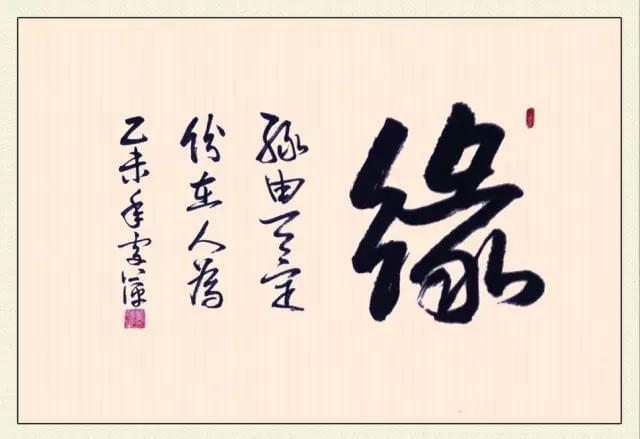 缘
缘由天定
份在人為
乙未年